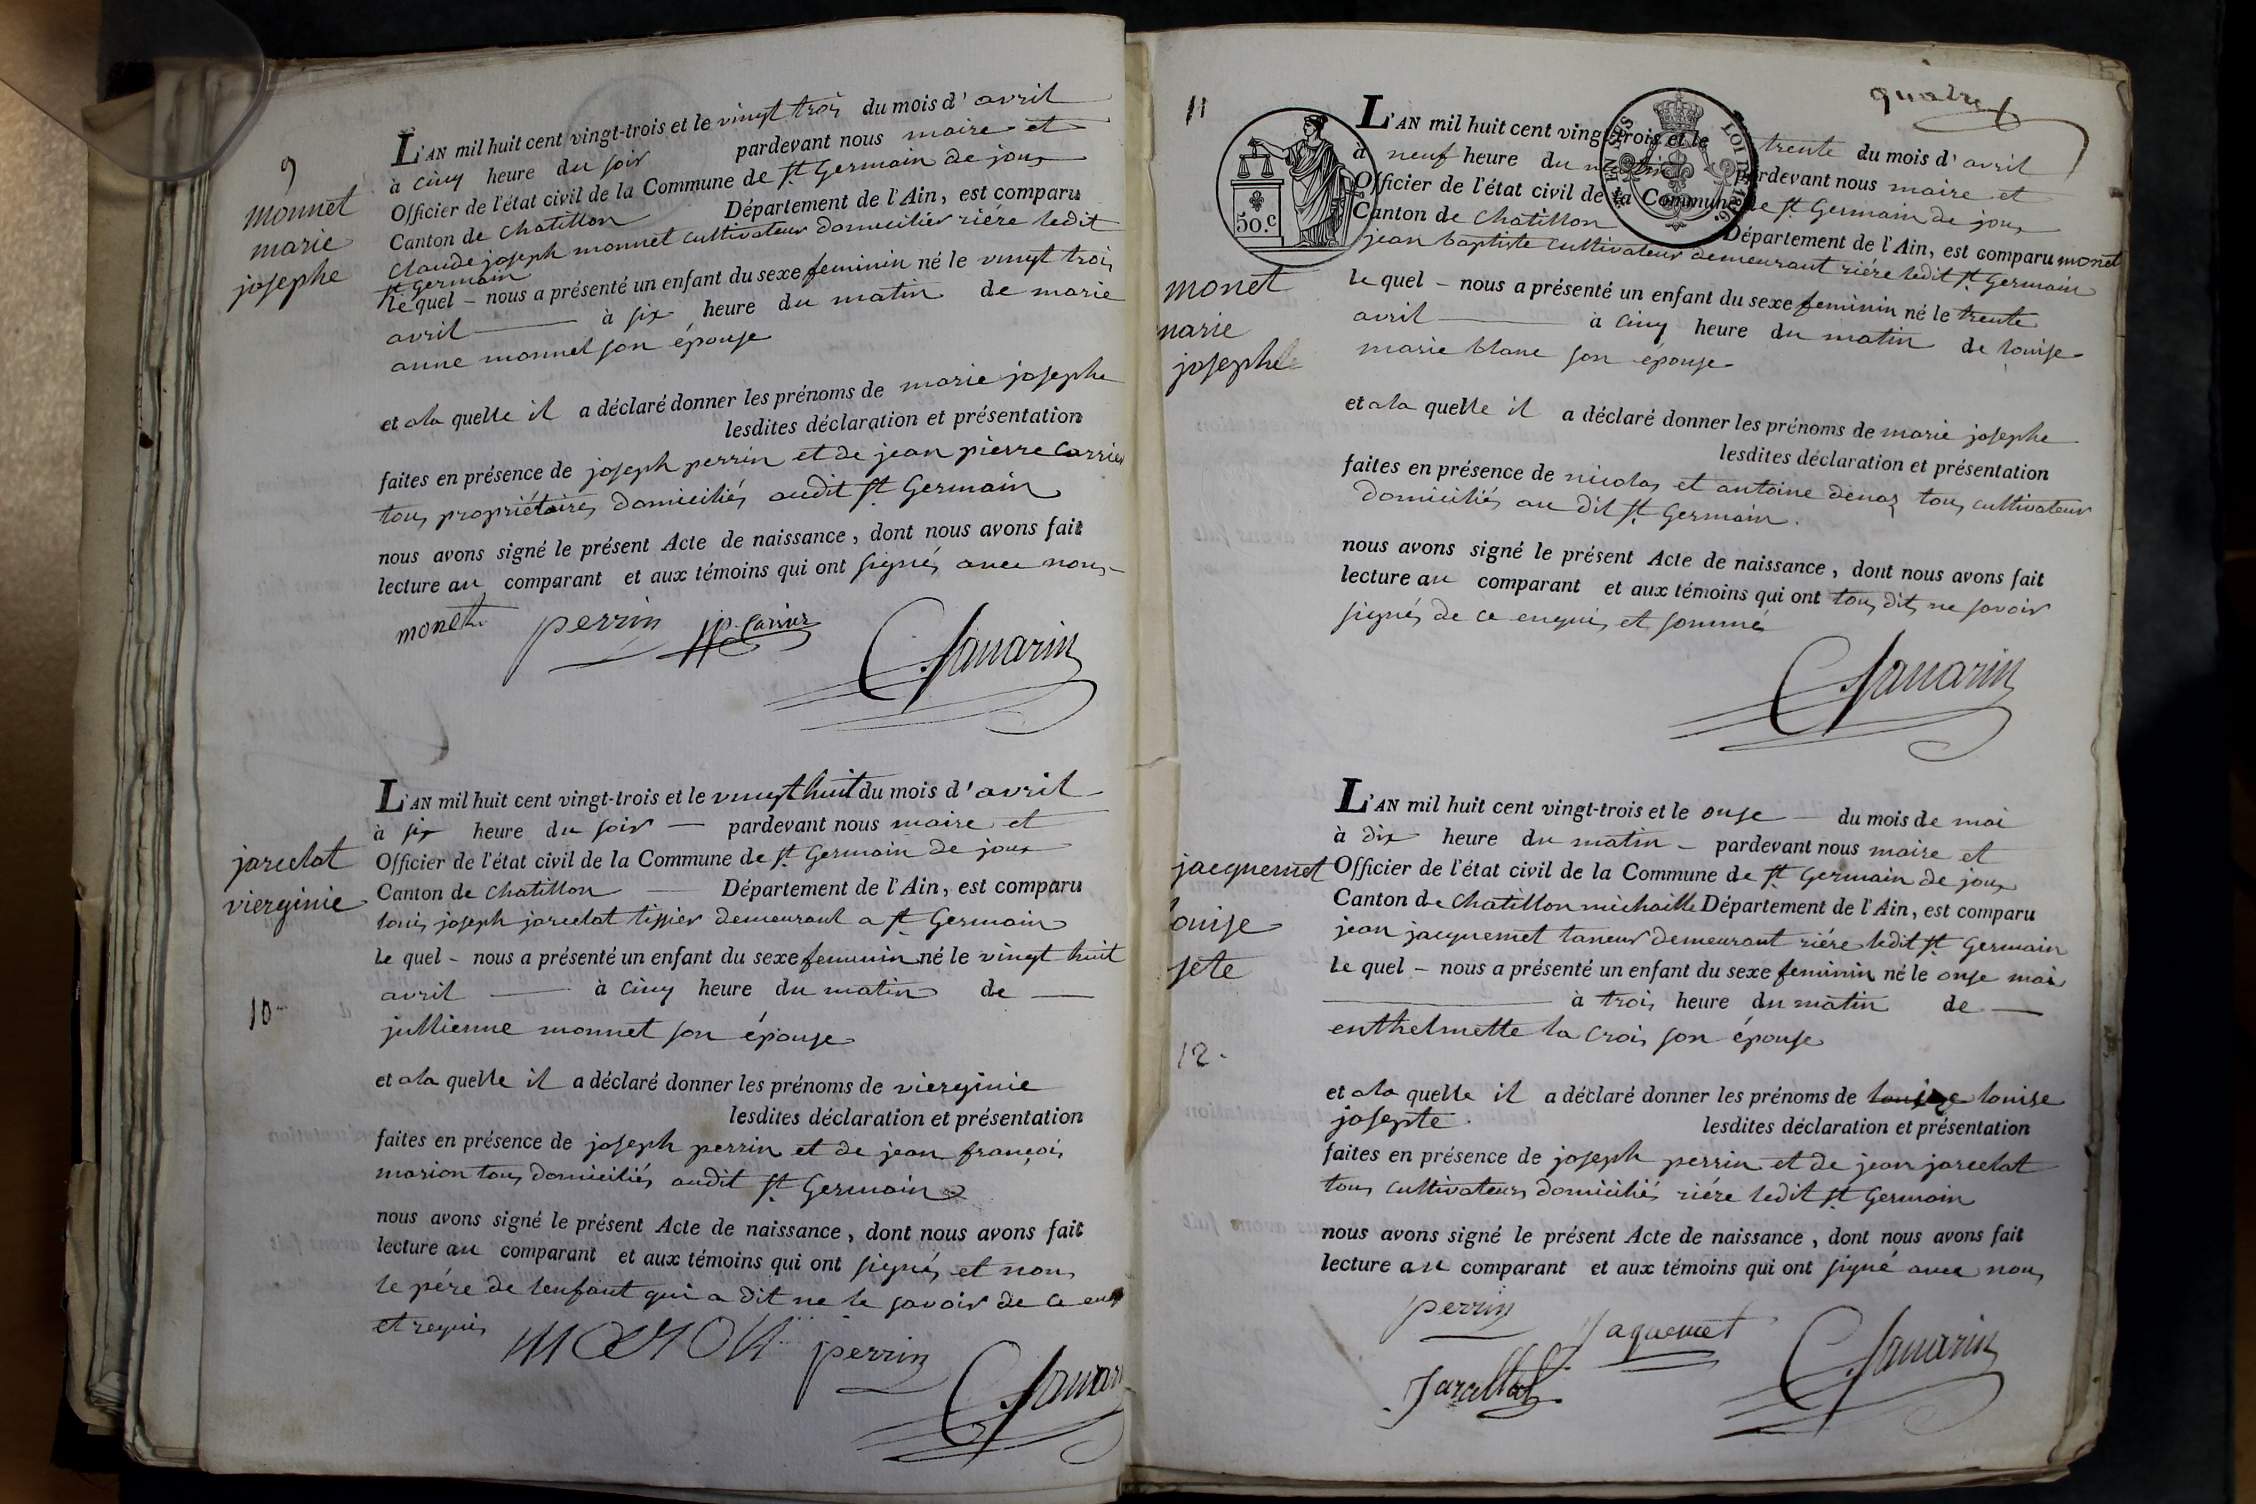 9
monnet
marie
josephe
L'AN mil huit cent vingt-trois et le vingt trois du mois d'avril
à cinq heure du soir pardevant nous maire et
Officier de l'état civil de la Commune de St Germain de joux
Canton de Chatillon Département de l'Ain, est comparu
Claude joseph monnet cultivateur domicilier riére ledit
St Germain
le quel - nous a présenté un enfant du sexe feminin né le vingt trois
avril à six heure du matin de marie
anne monnet son épouse
et ala quelle il a déclaré donner les prénoms de marie josephe
lesdites déclaration et présentation
faites en présence de joseph perrin et de jean pierre Carrier
tous propriétaires domiciliés audit St Germain
nous avons signé le présent Acte de naissance, dont nous avons fait
lecture au comparant et aux témoins qui ont signés avec nous
monet perrin JP. Carrier
CSavarin
jarcelat
vierginie
10
L'AN mil huit cent vingt-trois et le vingt huit du mois d'avril
à six heure du soir pardevant nous maire et
Officier de l'état civil de la Commune de St Germain de joux
Canton de Chatillon Département de l'Ain, est comparu
louis joseph jarcelat tissier demeurant a St Germain
le quel - nous a présenté un enfant du sexe feminin né le vingt huit
avril à cinq heure du matin de
jullienne monnet son épouse
et ala quelle il a déclaré donner les prénoms de vierginie
lesdites déclaration et présentation
faites en présence de joseph perrin et de jean françois
marion tous domiciliés audit St Germain
nous avons signé le présent Acte de naissance, dont nous avons fait
lecture au comparant et aux témoins qui ont signés et non
le pére de lenfant qui a dit ne le savoir de ce enq
et requis
perrin
CSavar
quatre
11
50.c
monet
marie
josephe
L'AN mil huit cent vingt-trois et le trente du mois d'avril
à neuf heure du matin pardevant nous maire et
Officier de l'état civil de la Commune de St Germain de joux
Canton de Chatillon Département de l'Ain, est comparu monet
jean baptiste cultivateur demeurant riére ledit St Germain
le quel - nous a présenté un enfant du sexe feminin né le trente
avril à cinq heure du matin de louise
marie blanc son épouse
et ala quelle il a déclaré donner les prénoms de marie josephe
lesdites déclaration et présentation
faites en présence de nicolas et antoine denaz tous cultivateur
domiciliés au dit St Germain.
nous avons signé le présent Acte de naissance, dont nous avons fait
lecture au comparant et aux témoins qui ont tous dits ne savoir
signés de ce enquis et sommés
CSavarin
jacquemet
louise
jete
12.
L'AN mil huit cent vingt-trois et le onse du mois de mai
à dix heure du matin - pardevant nous maire et
Officier de l'état civil de la Commune de St Germain de joux
Canton de Chatillon michaille Département de l'Ain, est comparu
jean jacquemet taneur demeurant riére ledit St Germain
le quel - nous a présenté un enfant du sexe feminin né le onse mai
à trois heure du matin de
enthelmette la Crois son épouse
et ala quelle il a déclaré donner les prénoms de louise
josepte.
lesdites déclaration et présentation
faites en présence de joseph perrin et de jean jarcelat
tous cultivateurs domiciliés riére ledit St Germain
nous avons signé le présent Acte de naissance, dont nous avons fait
lecture au comparant et aux témoins qui ont signé avec nous
perrin
Jaquemet
CSavarin